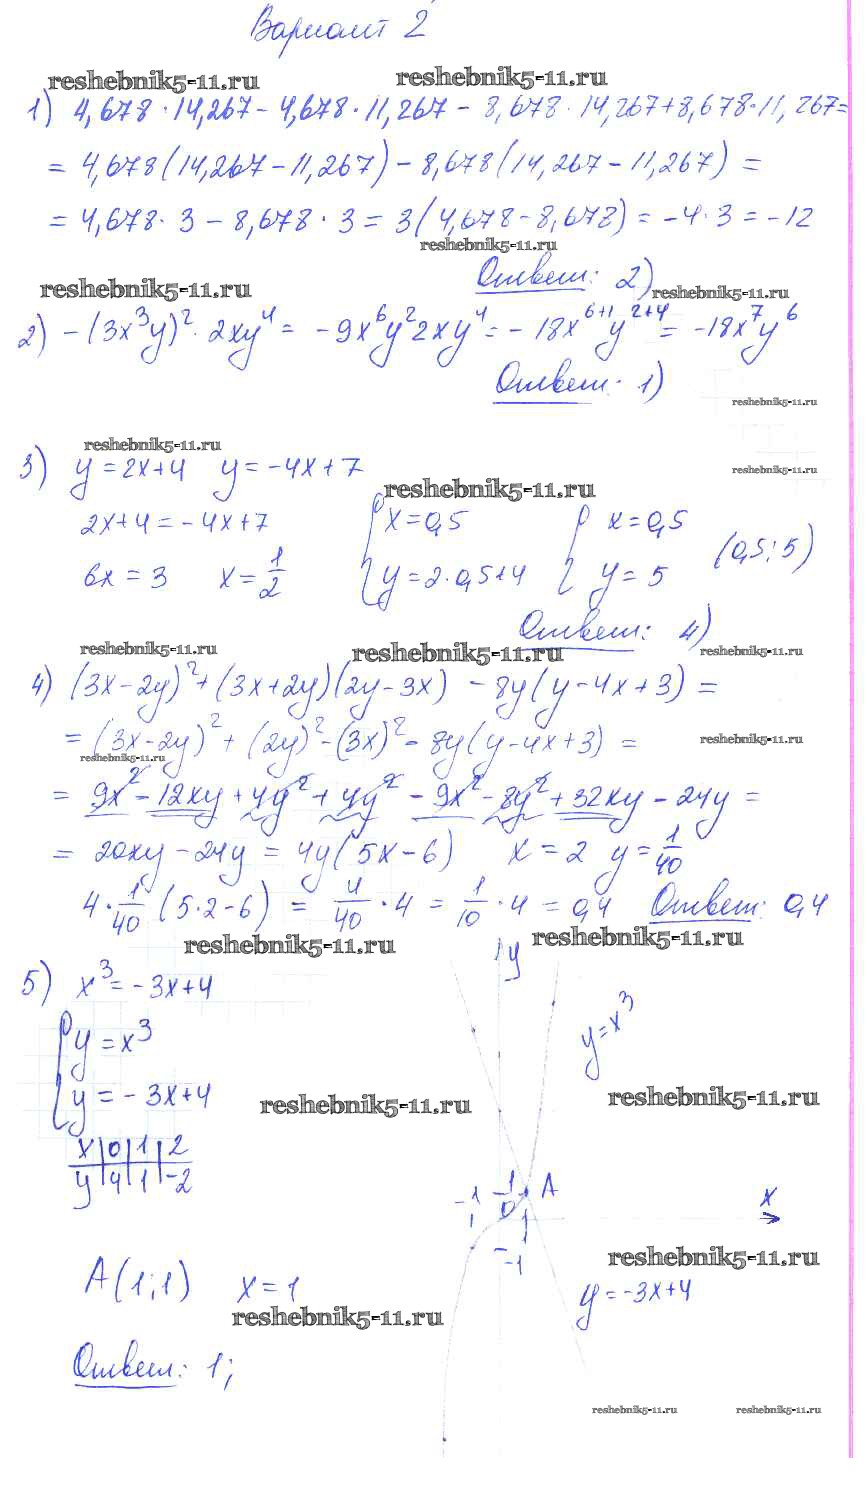 Вариант 2
reshebnik5-11.ru reshebnik5-11.ru
1) 4,678 · 14,267 - 4,678 · 11,267 - 8,678 · 14,267 + 8,678 · 11,267 =
= 4,678 (14,267 - 11,267) - 8,678 (14,267 - 11,267) =
= 4,678 · 3 - 8,678 · 3 = 3 (4,678 - 8,678) = -4 · 3 = -12
reshebnik5-11.ru
reshebnik5-11.ru Ответ: 2) reshebnik5-11.ru
2) -(3x³y)² · 2xy⁴ = -9x⁶y²2xy⁴ = -18x⁶⁺¹y²⁺⁴ = -18x⁷y⁶
Ответ: 1)
reshebnik5-11.ru
reshebnik5-11.ru
3) y = 2x+4 y = -4x+7 reshebnik5-11.ru
reshebnik5-11.ru
2x+4 = -4x+7 { x = 0,5 { x = 0,5 (0,5; 5)
6x = 3 x = 1/2 y = 2 · 0,5+4 y = 5
Ответ: 4)
reshebnik5-11.ru reshebnik5-11.ru reshebnik5-11.ru
4) (3x-2y)² + (3x+2y)(2y-3x) - 8y(y-4x+3) =
= (3x-2y)² + (2y)² - (3x)² - 8y(y-4x+3) = reshebnik5-11.ru
reshebnik5-11.ru
= 9x² - 12xy + 4y² + 4y² - 9x² - 8y² + 32xy - 24y =
= 20xy - 24y = 4y(5x-6) x = 2 y = 1/40
4 · 1/40 (5·2-6) = 4/40 · 4 = 1/10 · 4 = 0,4 Ответ: 0,4
reshebnik5-11.ru reshebnik5-11.ru
5) x³ = -3x+4 y
{ y = x³ y=x³
y = -3x+4
reshebnik5-11.ru reshebnik5-11.ru
x 0 1 2
y 4 1 -2
-1 1 A x
0 1
-1
reshebnik5-11.ru
A(1;1) x = 1 y = -3x+4
reshebnik5-11.ru
Ответ: 1;
reshebnik5-11.ru reshebnik5-11.ru